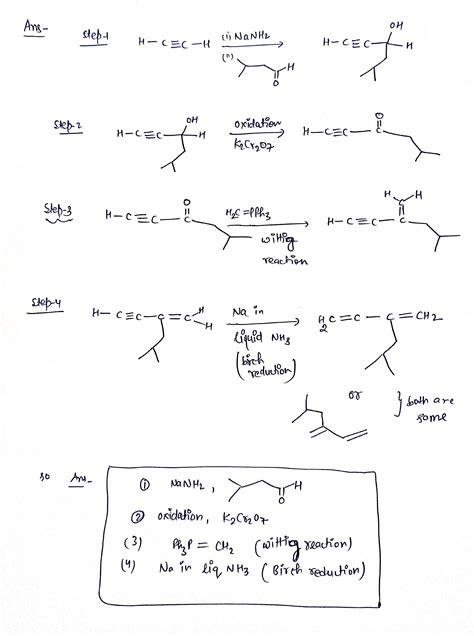 Ans-
Step-1
H-C≡C-H
(i) NaNH2
(ii)
H
O
H-C≡C
OH
H
Step-2
H-C≡C
OH
H
oxidation
K2Cr2O7
H-C≡C
O
C
Step-3
H-C≡C-C
O
H2C=PPh3
wittig
reaction
H
H
C
H-C≡C-C
Step-4
H-C≡C-C=C
H
H
Na in
liquid NH3
(birch
reduction)
H2C=C-C=CH2
or
} both are
same
so Ans-
① NaNH2,
H
O
② oxidation, K2Cr2O7
(3) Ph3P=CH2 (wittig reaction)
(4) Na in liq NH3 (Birch reduction)